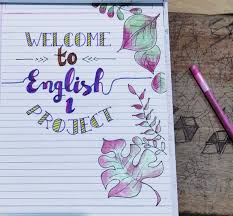 WELCOME
to
English
1
PROJECT